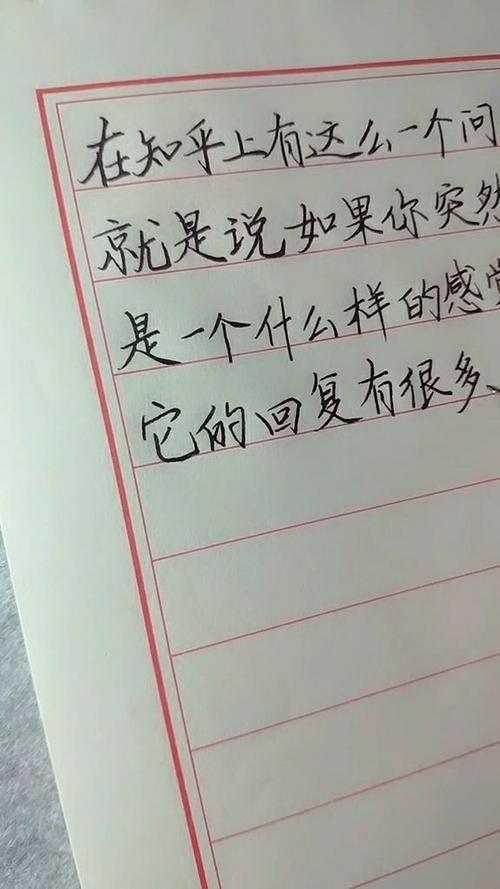 在知乎上有这么一个问
就是说如果你突然
是一个什么样的感觉
它的回复有很多、